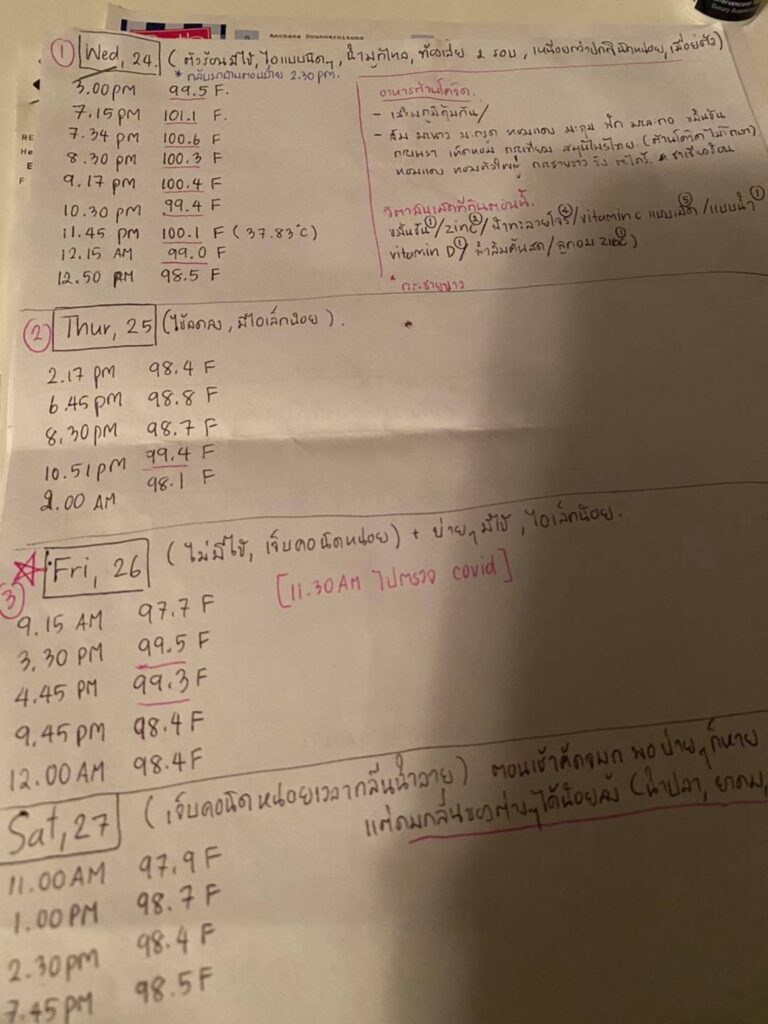 Anchana Doungsroitong
① Wed, 24. (ตัวร้อนมีไข้, ไอแบบนิดๆ, น้ำมูกไหล, ท้องเสีย 2 รอบ, เหนื่อยกว่าปกตินิดหน่อย, เมื่อยตัว)
* กลับมาบ้านตอนบ่าย 2.30 pm.
3.00pm 99.5 F.
7.15 pm 101.1 F.
7.34 pm 100.6 F
8.30 pm 100.3 F
9.17 pm 100.4 F
10.30 pm 99.4 F
11.45 pm 100.1 F (37.83°C)
12.15 AM 99.0 F
12.50 AM 98.5 F
อาหารต้านโควิด.
- เสริมภูมิคุ้มกัน/
- ส้ม มะนาว มะกรูด หอมแดง ฟัก มะละกอ ขมิ้นชัน
กะเพรา เห็ดหอม กระเทียม สมุนไพรไทย. (ต้านโควิด ไม่รักษา)
หอมแดง หอมหัวใหญ่ กระชายขาว ขิง ตะไคร้.
วิตามินเม็ดที่กินตอนนี้.
ขมิ้นชัน①/zinc/ฟ้าทะลายโจร④/vitamin c แบบเม็ด⑤/แบบน้ำ①
vitamin D①/น้ำส้มคั้นสด/ลูกอม zinc)
* กระชายขาว
② Thur, 25 (ไข้ลดลง, มีไอเล็กน้อย).
2.17 pm 98.4 F
6.45 pm 98.8 F
8.30 pm 98.7 F
10.51 pm 99.4 F
2.00 AM 98.1 F
③ Fri, 26 (ไม่มีไข้, เจ็บคอนิดหน่อย) + บ่ายๆ มีไข้, ไอเล็กน้อย.
[11.30 AM ไปตรวจ covid]
9.15 AM 97.7 F
3.30 PM 99.5 F
4.45 PM 99.3 F
9.45 pm 98.4 F
12.00 AM 98.4 F
Sat, 27 (เจ็บคอนิดหน่อยเวลากลืนน้ำลาย) ตอนเช้าคัดจมูก พอบ่ายๆ ก็หาย
แต่ดมกลิ่นของต่างๆ ได้น้อยลง (น้ำปลา, ยาดม,
11.00 AM 97.9 F
1.00 PM 98.7 F
2.30 pm 98.4 F
7.45 pm 98.5 F